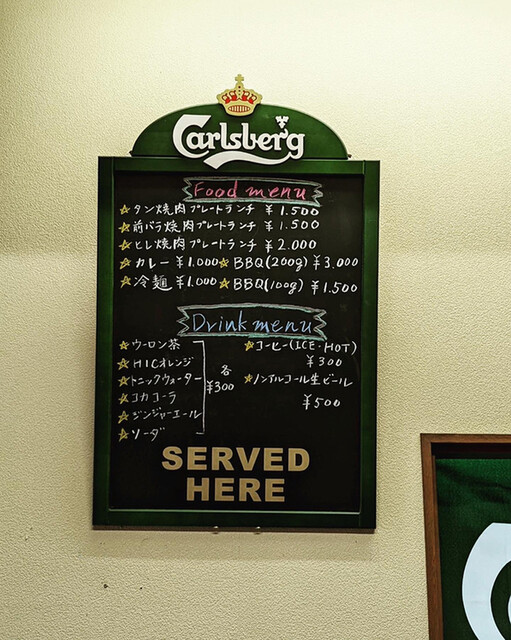 Carlsberg
Food menu
☆タン焼肉プレートランチ ¥1.500
☆前バラ焼肉プレートランチ ¥1.500
☆ヒレ焼肉プレートランチ ¥2.000
☆カレー ¥1.000 ☆BBQ(200g) ¥3.000
☆冷麺 ¥1.000 ☆BBQ(100g) ¥1.500
Drink menu
☆ウーロン茶
☆HICオレンジ
☆トニックウォーター
☆コカコーラ
☆ジンジャーエール
☆ソーダ
各
¥300
☆コーヒー(ICE・HOT)
¥300
☆ノンアルコール生ビール
¥500
SERVED
HERE